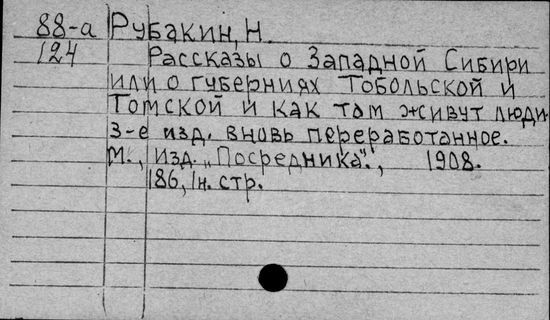 88-а Рубакин, Н.
124 Рассказы о Западной Сибири
или о губерниях Тобольской и
Томской и как там живут люди
3-е изд. вновь переработанное.
М., Изд. „Посредника“., 1908.
186, 1н. стр.